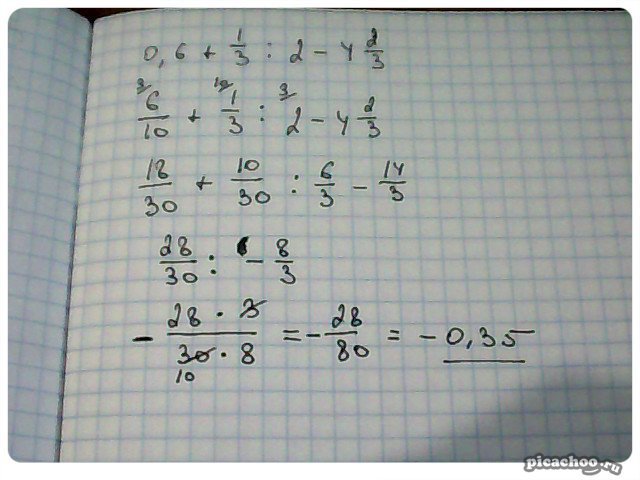 0,6 + 1/3 : 2 - 4 2/3
3 10 3
6/10 + 1/3 : 2 - 4 2/3
18/30 + 10/30 : 6/3 - 14/3
28/30 : - 8/3
- 28 · 3 / 30 · 8 = - 28/80 = - 0,35
10
picachoo.ru